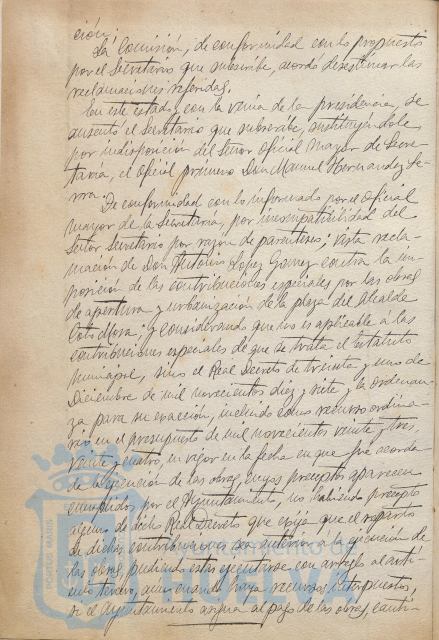 ción.
La Comisión, de conformidad con lo propuesto
por el Secretario que subscribe, acordó desestimar las
reclamaciones referidas.
En este estado, con la venia de la presidencia, se
ausentó el Secretario que subscribe, sustituyéndole
por indisposición del Señor Oficial Mayor de Secre-
taría, el Oficial primero Don Manuel Hernandez Se-
rra.
De conformidad con lo informado por el Oficial
mayor de la Secretaría, por incompatibilidad del
Señor Secretario por razon de parentesco; vista recla-
mación de Don Antonio Lopez Gomez contra la im-
posición de las contribuciones especiales por las obras
de apertura y urbanización de la plaza del Alcalde
Coto Mora; y considerando que no es aplicable á las
contribuciones especiales de que se trata el Estatuto
Municipal, sino el Real Decreto de treinta y uno de
Diciembre de mil novecientos diez y siete y la ordenan-
za para su exacción, incluida como recurso ordina-
rio en el presupuesto de mil novecientos veinte y tres,
veinte y cuatro, en vigor en la fecha en que fué acorda-
da la ejecución de las obras, cuyos preceptos aparecen
cumplidos por el Ayuntamiento, no habiendo precepto
alguno de dicho Real Decreto que exija que el reparto
de dichas contribuciones sea anterior á la ejecución de
las obras, pudiendo estas ejecutarse con arreglo al artí-
culo tercero, aun cuando haya recursos interpuestos
si el Ayuntamiento asegura el pago de las obras, canti-
PORTUS MARIS
Ayuntamiento de
HUELVA